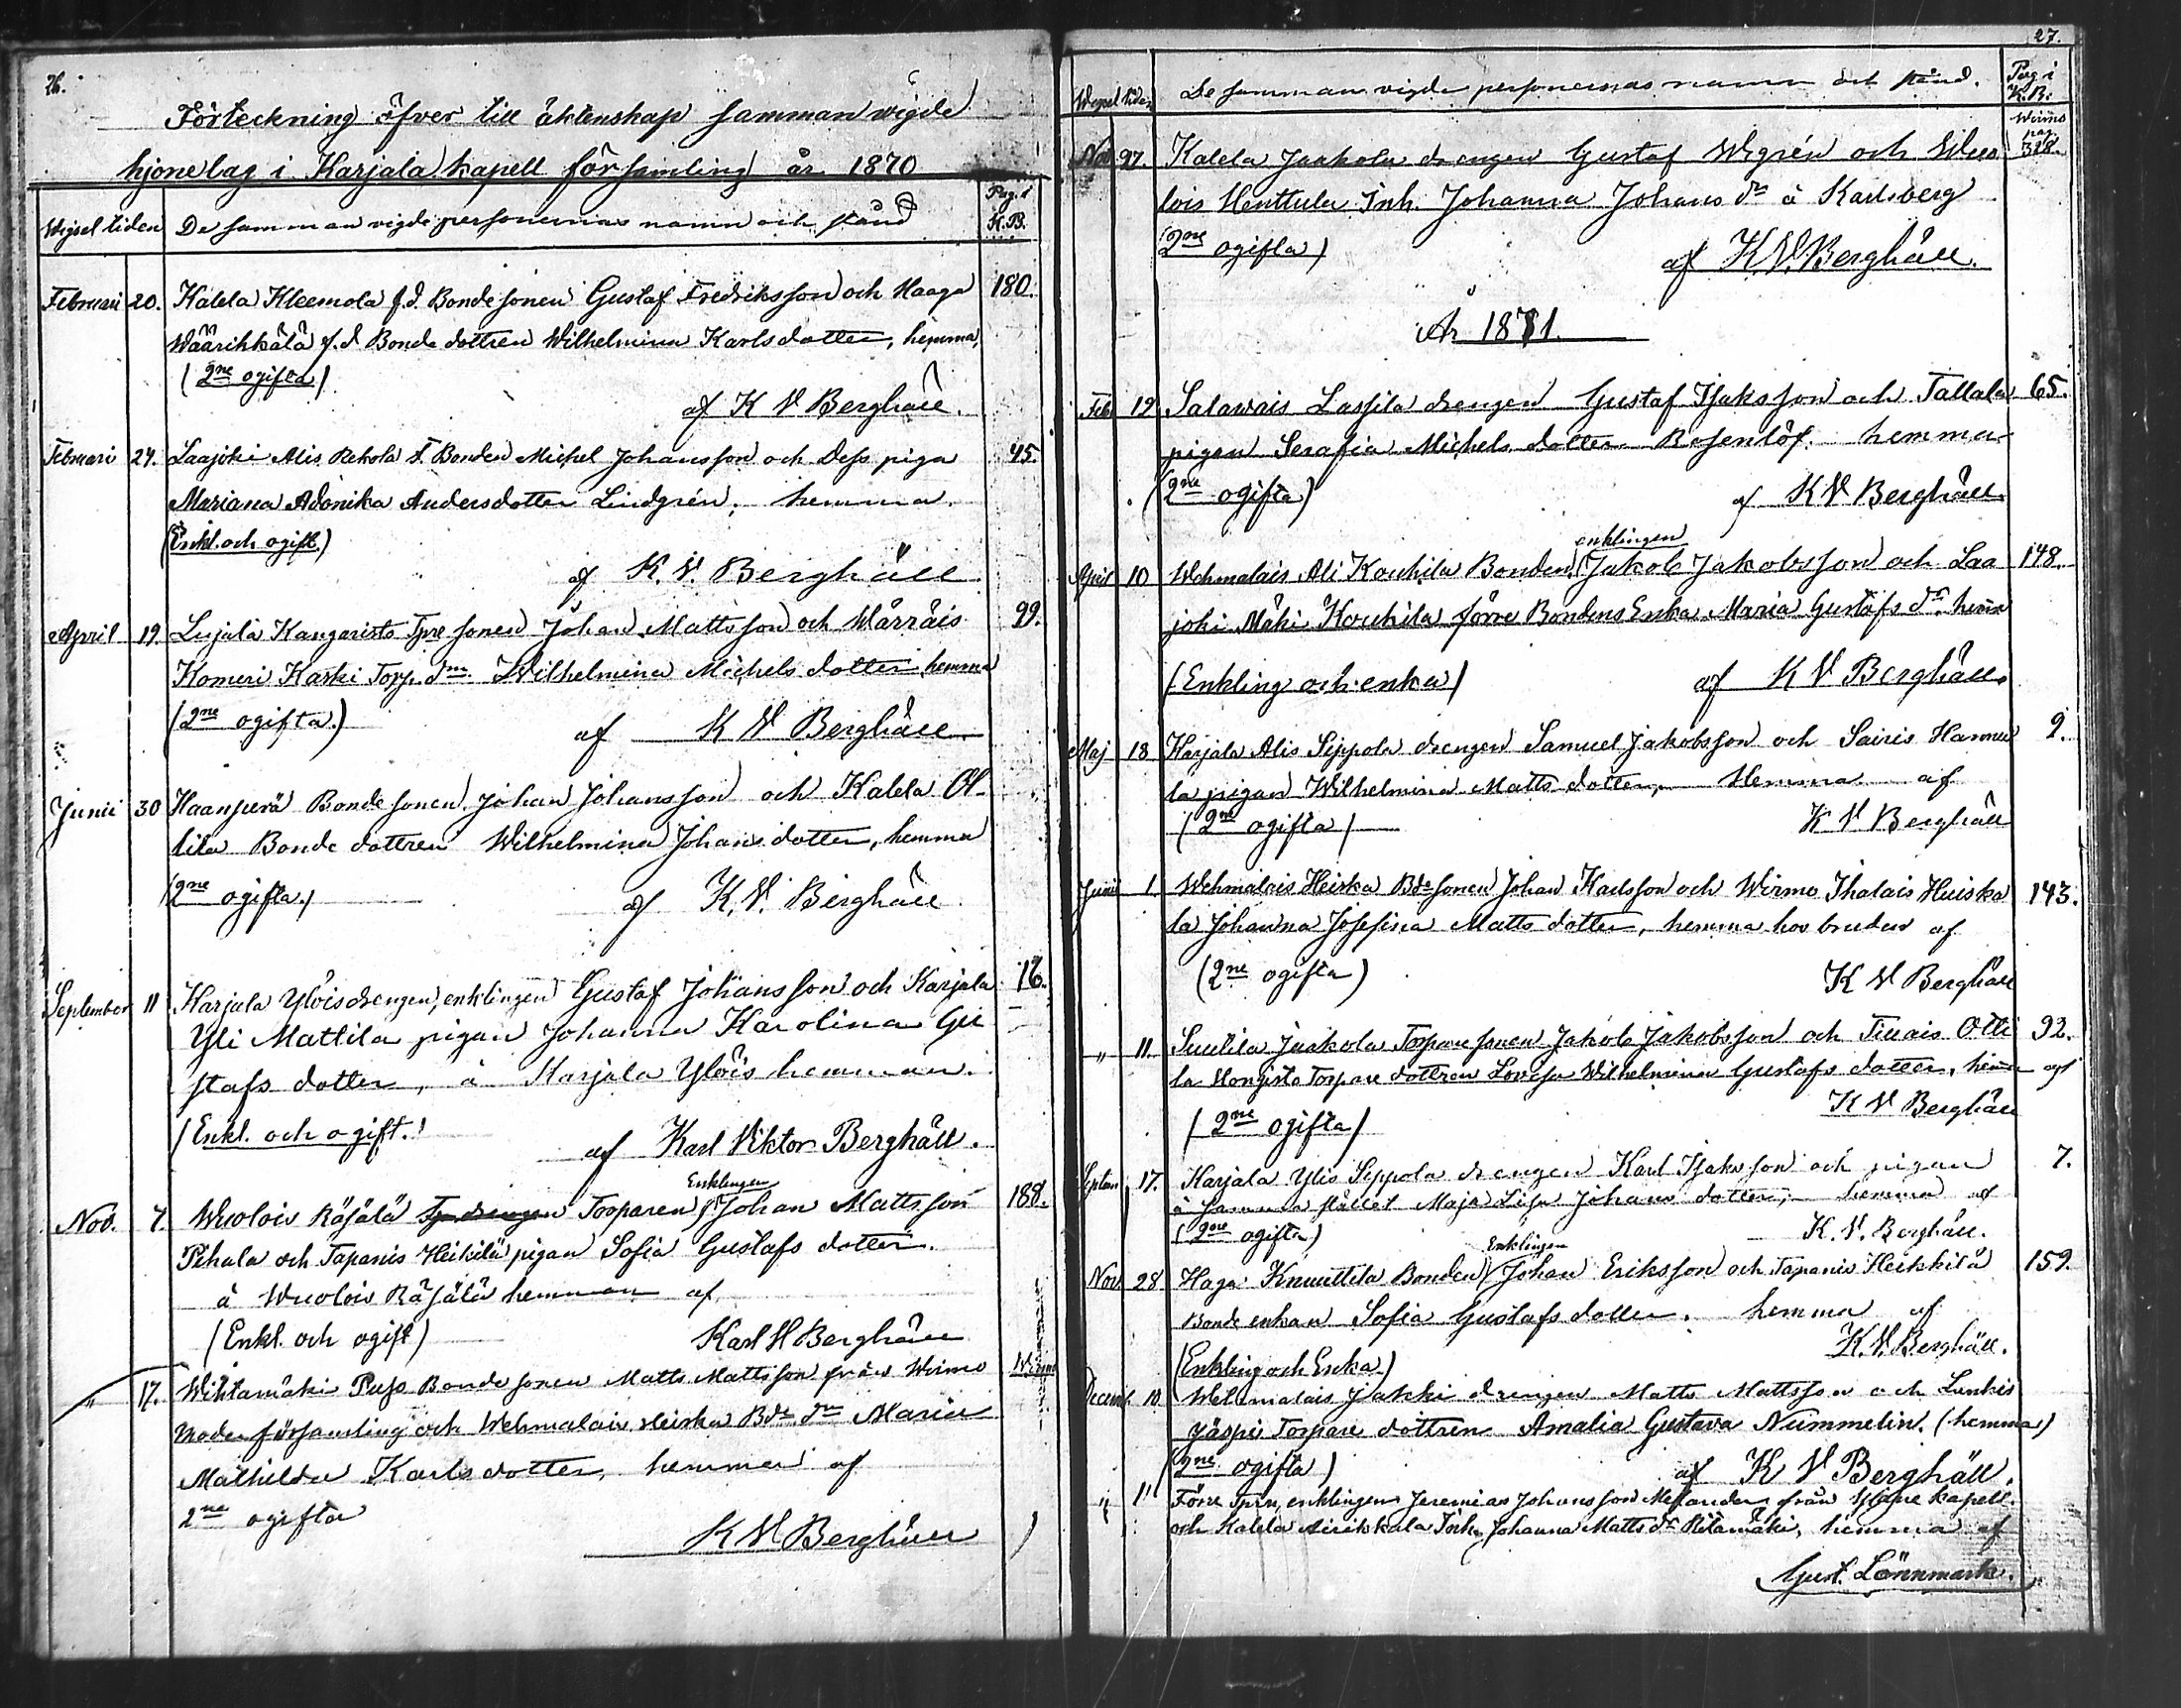 26.
Förteckning öfver till äktenskap sammanvigde
hjonelag i Karjala kapell församling år 1870
Vigsel tiden De samman vigde personernas namn och stånd Pag. i K.B.
Februari 20. Kalela Kleemola f.d. Bondesonen Gustaf Fredriksson och Haaga 180.
Wäärikkälä f.d. Bonde dottren Wilhelmina Karlsdotter, hemma,
(2ne ogifta)
af K V Berghäll.
Februari 24. Laajoki Alis Rekola f. Bonden Michel Johansson och dess piga 45.
Mariana Adonika Andersdotter Lindgrén, hemma.
(Enkl. och ogift.)
af K. V. Berghäll
April 19. Lujala Kangaristo Tpresonen Johan Mattsson och Wårråis 99.
Komeri Karki Torp. dn. Wilhelmina Michels dotter, hemma
(2ne ogifta.)
af K V Berghäll
Junii 30 Haanperä Bondesonen Johan Johansson och Kalela Ol-
lila Bonde dottren Wilhelmina Johans dotter, hemma
(2ne ogifta.)
af K. V. Berghäll
September 11 Karjala Ylöis drengen, enklingen Gustaf Johansson och Karjala 16.
Yli Mattila pigan Johanna Karolina Gu
stafs dotter, å Karjala Ylöis hemman.
(Enkl. och ogift.)
af Karl Viktor Berghäll.
Enklingen
Nov. 7. Wuolois Räsälä Torparen Johan Mattsson 188.
Pihala och Tapanis Heikilä pigan Sofia Gustafs dotter.
å Wuolois Räsälä hemman af
(Enkl. och ogift) Karl V Berghäll
" 17. Wihtamäki Pujo Bondesonen Matts Mattsson från Wirmo Wirmo
Moder församling och Wehmalais Heiska Bde dn Maria
Mathilda Karlsdotter, hemma af
2ne ogifta
K V Berghäll
27.
Vigsel tiden De samman vigde personernas namn och stånd. Pag i K. B.
Wirmo pag.
Nov 27. Kalela Jaakola drengen Gustaf Wigrén och Wuo 328.
lois Henttula Inh. Johanna Johans dr å Karlsberg
(2ne ogifta)
af K V. Berghäll.
År 1871.
Feb 19 Salavais Lassila drengen Gustaf Isaksson och Tallala 65.
pigan Serafia Michels dotter Rosenlöf. hemma
(2ne ogifta) af K V Berghäll.
enklingen
April 10 Wehmalais Ali Kouhila Bonden Jakob Jakobsson och Laa 148.
joki Mäki Kouhila förre Bondens Enka Maria Gustafs dr. hema
(Enkling och enka) af K V Berghäll.
Maj 18 Karjala Alis Seppola drengen Samuel Jakobsson och Sairis Hannu 9.
la pigan Wilhelmina Matts dotter, Hemma af
(2ne ogifta) K V Berghäll
Junii 1. Wehmalais Heiska Bdesonen Johan Karlsson och Wirmo Ihalais Huiska 143.
la Johanna Josefina Matts dotter, hemma hos bruden af
(2ne ogifta) K V Berghäll
" 11. Suutila Jaakola Torparesonen Jakob Jakobsson och Tiuais Otti 92.
la Hongisto Torpare dottren Lovisa Wilhelmina Gustafs dotter, hema af
(2ne ogifta) K V Berghäll
Septem 17. Karjala Ylis Seppola drengen Karl Isaksson och pigan 7.
å samma stället Maja Lisa Johans dotter, hemma af
(2ne ogifta) K. V. Berghäll.
Enklingen
Nov 28 Haga Knuuttila Bonden Johan Eriksson och Tapanis Heikkilä 159.
Bonde enkan Sofia Gustafs dotter. hemma af
(Enkling och Enka.) K. V. Berghäll.
Decemb. 10 Wehmalais Jakki drengen Matts Mattsson och Lunkis
Jäspi Torpare dottren Amalia Gustava Nummelin. (hemma)
(2ne ogifta) af K V Berghäll.
" 1" Förre Tprn, enklingen Jeremias Johansson Melander från Yläne kapell.
och Kalela Airikkala Inh. Johanna Matts dr Ritamäki, hemma af
Gust. Lönnmark.